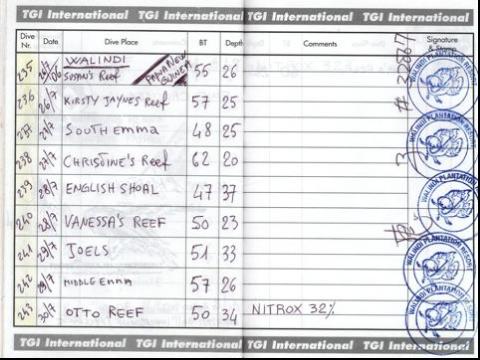 TGI International TGI International TGI International TGI International
Dive Nr. Date Dive Place BT Depth Comments Signature & Stamp
WALINDI PAPUA NEW GUINEA
235 26/7 SUSAN'S REEF 55 26
236 26/7 KIRSTY JAYNES Reef 57 25
237 27/7 SOUTH EMMA 48 25
238 27/7 CHRISTINE'S REEF 62 20
239 28/7 ENGLISH SHOAL 47 37
240 28/7 VANESSA'S REEF 50 23
241 29/7 JOELS 51 33
242 29/7 MIDDLE EMMA 57 26
243 30/7 OTTO REEF 50 34 NITROX 32%
WALINDI PLANTATION RESORT
WALINDI PLANTATION RESORT
WALINDI PLANTATION RESORT
WALINDI PLANTATION RESORT
WALINDI PLANTATION RESORT
TGI International TGI International TGI International TGI International